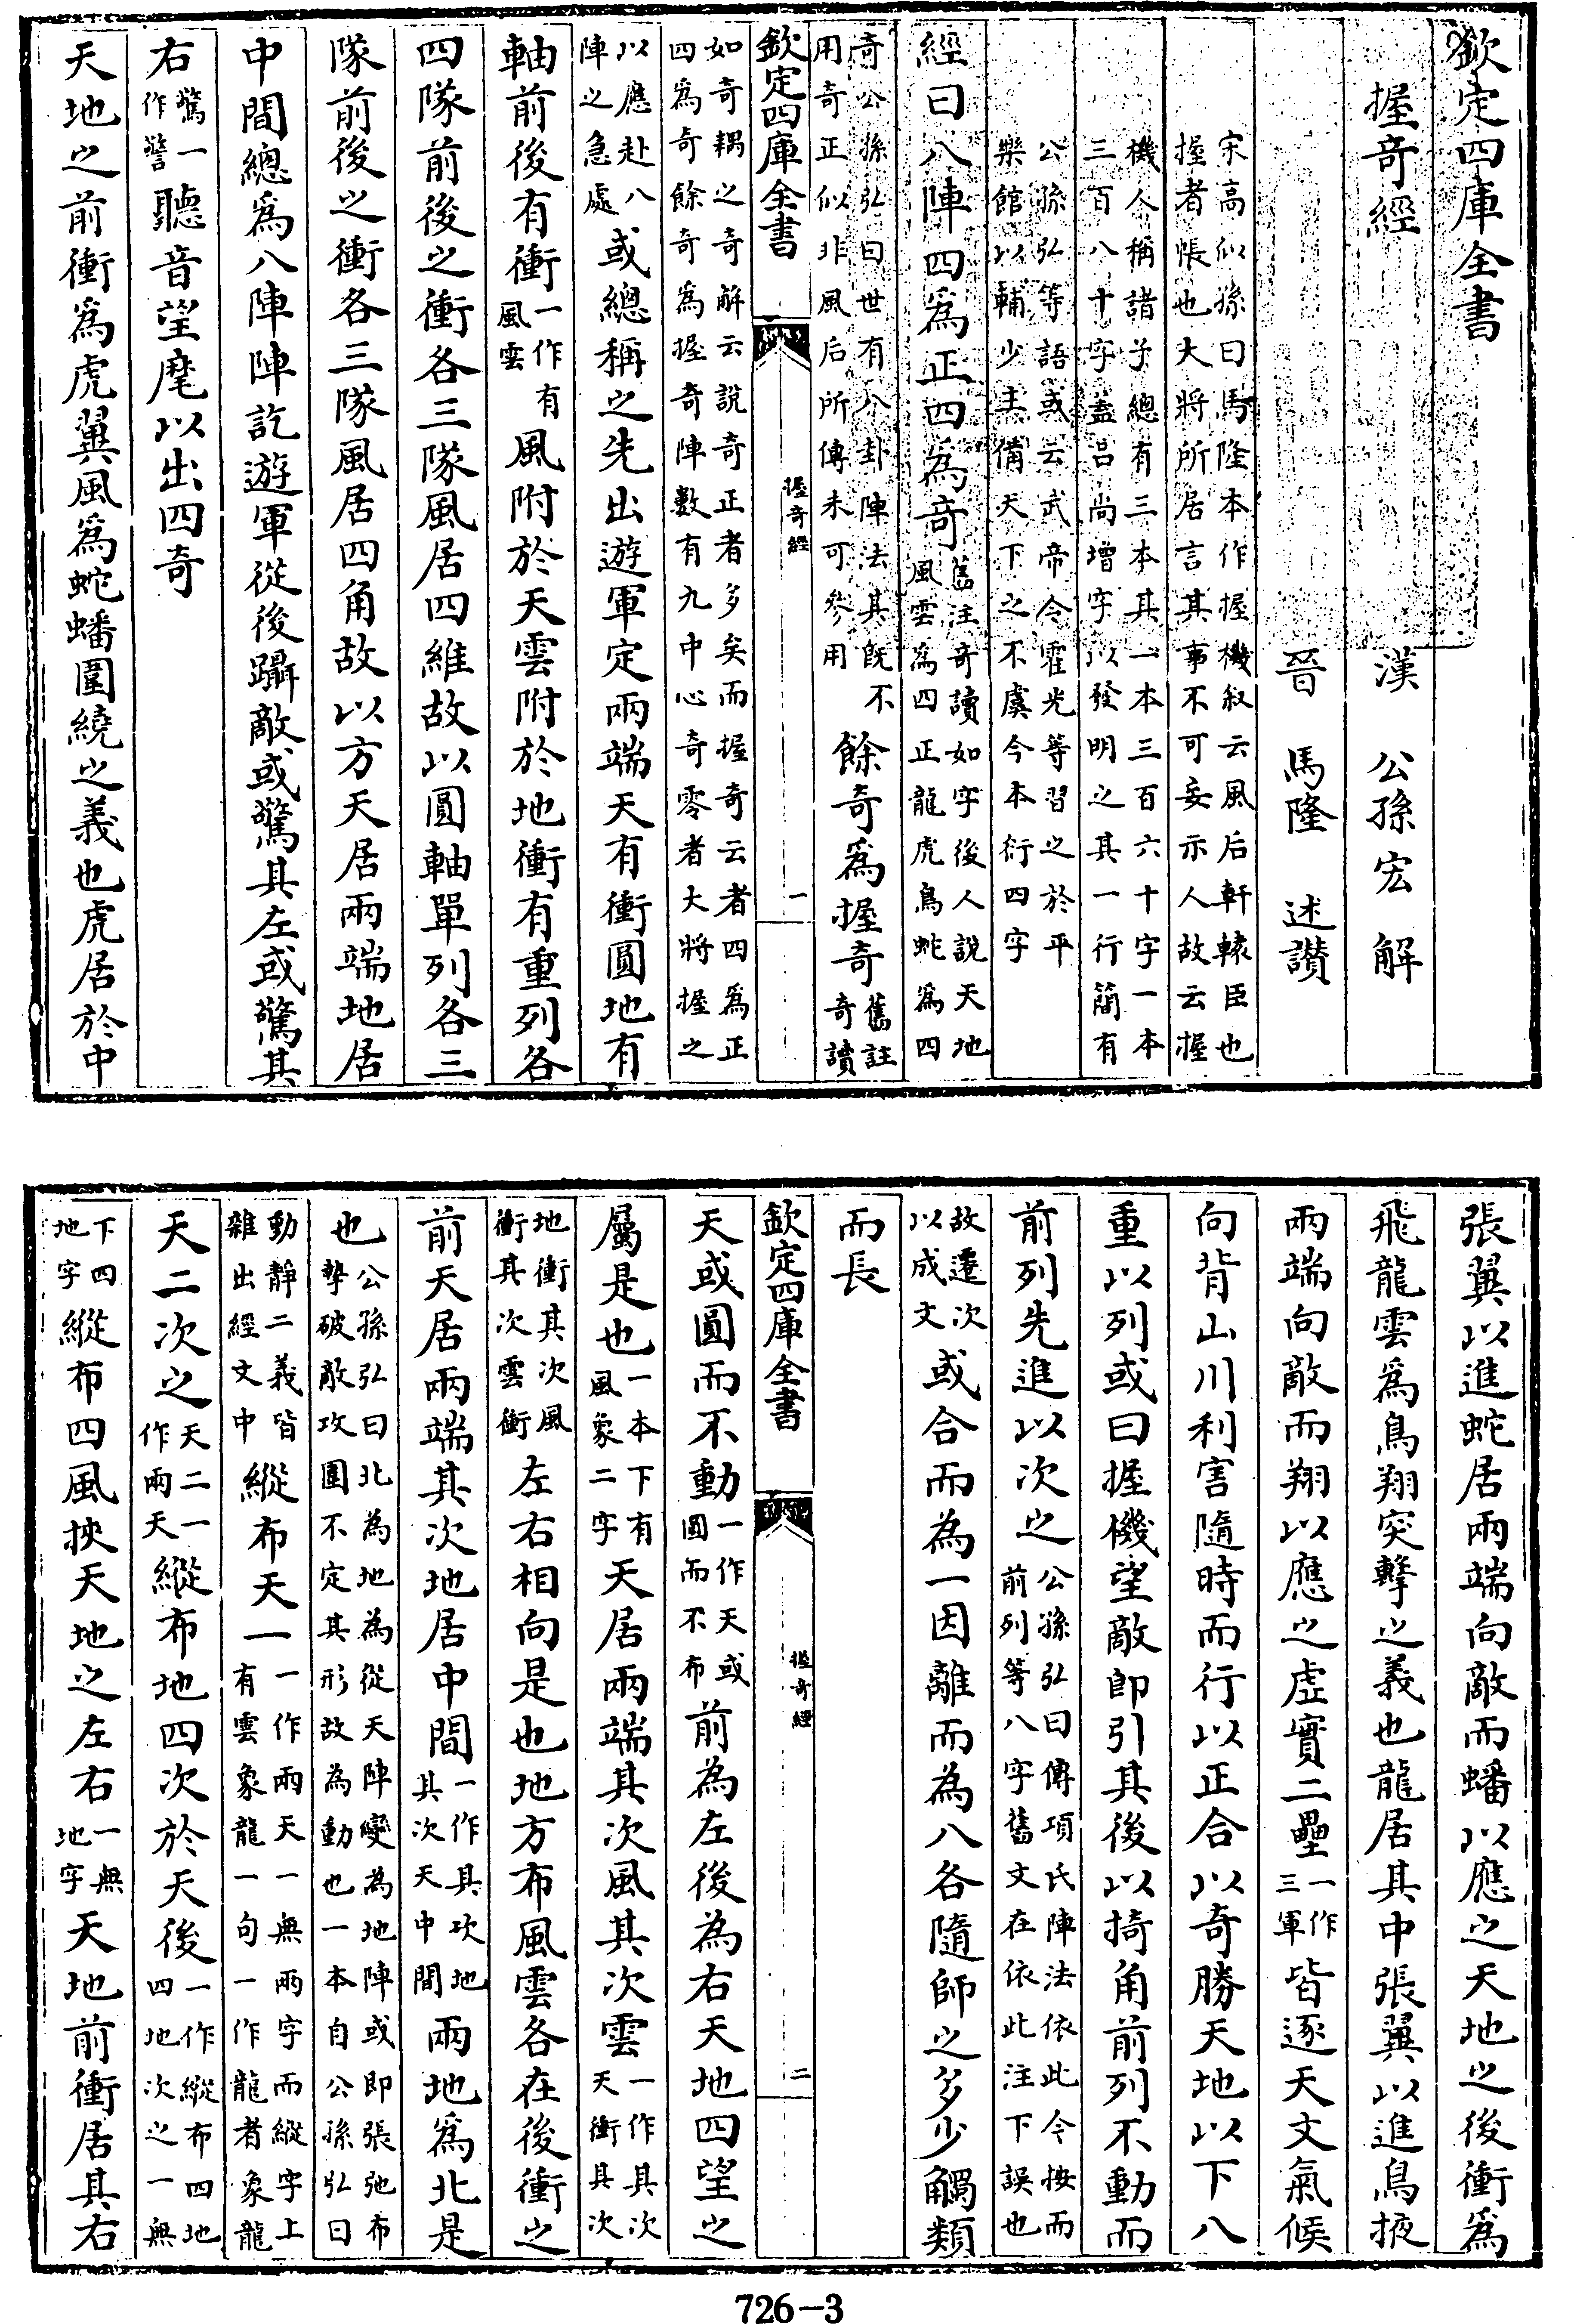 欽定四庫全書
握奇經　漢　公孫宏　解
晉　馬隆　述讃
宋高似孫曰馬隆本作握機叙云風后軒轅臣也
握者帳也大將所居言其事不可妄示人故云握
機人稱諸子總有三本其一本三百六十字一本
三百八十字盖吕尚增字以發明之其一行簡有
公孫弘等語或云武帝令霍光等習之於平
樂館以輔少主備天下之不虞今本衍四字
經曰八陣四為正四為奇舊注奇讀如字後人說天地風雲為四正龍虎鳥蛇為四
奇公孫弘曰世有八卦陣法其旣不用奇正似非風后所傳未可參用餘奇為握奇舊註奇讀
欽定四庫全書　握奇經　一
如奇耦之奇解云說奇正者多矣而握奇云者四為正
四為奇餘奇為握奇陣數有九中心奇零者大將握之
以應赴八陣之急處或總稱之先出遊軍定兩端天有衝圓地有
軸前後有衝一作有風雲風附於天雲附於地衝有重列各
四隊前後之衝各三隊風居四維故以圓軸單列各三
隊前後之衝各三隊風居四角故以方天居兩端地居
中間總為八陣陣訖遊軍從後躡敵或驚其左或驚其
右驚一作警聽音望麾以出四奇
天地之前衝為虎翼風為蛇蟠圍繞之義也虎居於中
張翼以進蛇居兩端向敵而蟠以應之天地之後衝為
飛龍雲為鳥翔突擊之義也龍居其中張翼以進鳥掖
兩端向敵而翔以應之虛實二壘一作三軍皆逐天文氣候
向背山川利害隨時而行以正合以奇勝天地以下八
重以列或曰握機望敵即引其後以掎角前列不動而
前列先進以次之公孫弘曰傳項氏陣法依此令按而前列等八字舊文在依此注下誤也
故遷次以成文或合而為一因離而為八各隨師之多少觸類
而長
欽定四庫全書　握奇經　二
天或圓而不動一作天或圓而不布前為左後為右天地四望之
屬是也一本下有風象二字天居兩端其次風其次雲一作其次天衝其次
地衝其次風衝其次雲衝左右相向是也地方布風雲各在後衝之
前天居兩端其次地居中間一作其次地其次天中間兩地為北是
也公孫弘曰北為地為從天陣變為地陣或即張弛布摯破敵攻圍不定其形故為動也一本自公孫弘曰
動靜二義皆雜出經文中縱布天一一作兩天一無兩字而縱字上有雲象龍一句一作龍者象龍
天二次之天二一作兩天縱布地四次於天後一作縱布四地四地次之一無
下四地字縱布四風挾天地之左右一無地字天地前衝居其右
726-3